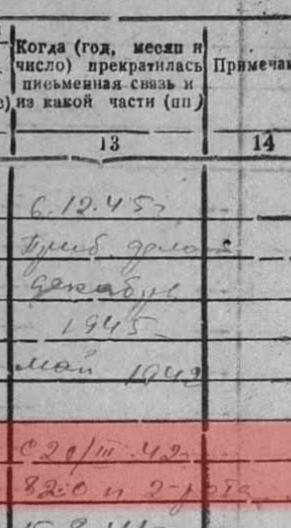 Когда (год, месяц и
число) прекратилась Примечан
письменная связь и
из какой части (пп)
13 14
6.12.45г
Приб. домой
декабрь
1945
май 1942
с 20/III.42г
82
2-рота